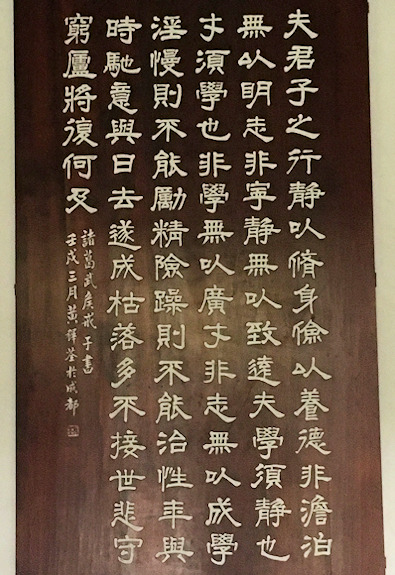 夫君子之行静以脩身儉以養德非澹泊
無以明志非寧靜無以致遠夫學須靜也
才須學也非學無以廣才非志無以成學
淫慢則不能勵精險躁則不能治性年與
時馳意與日去遂成枯落多不接世悲守
窮廬將復何及
諸葛武矦戒子書
壬戌三月黄稺荃於成都